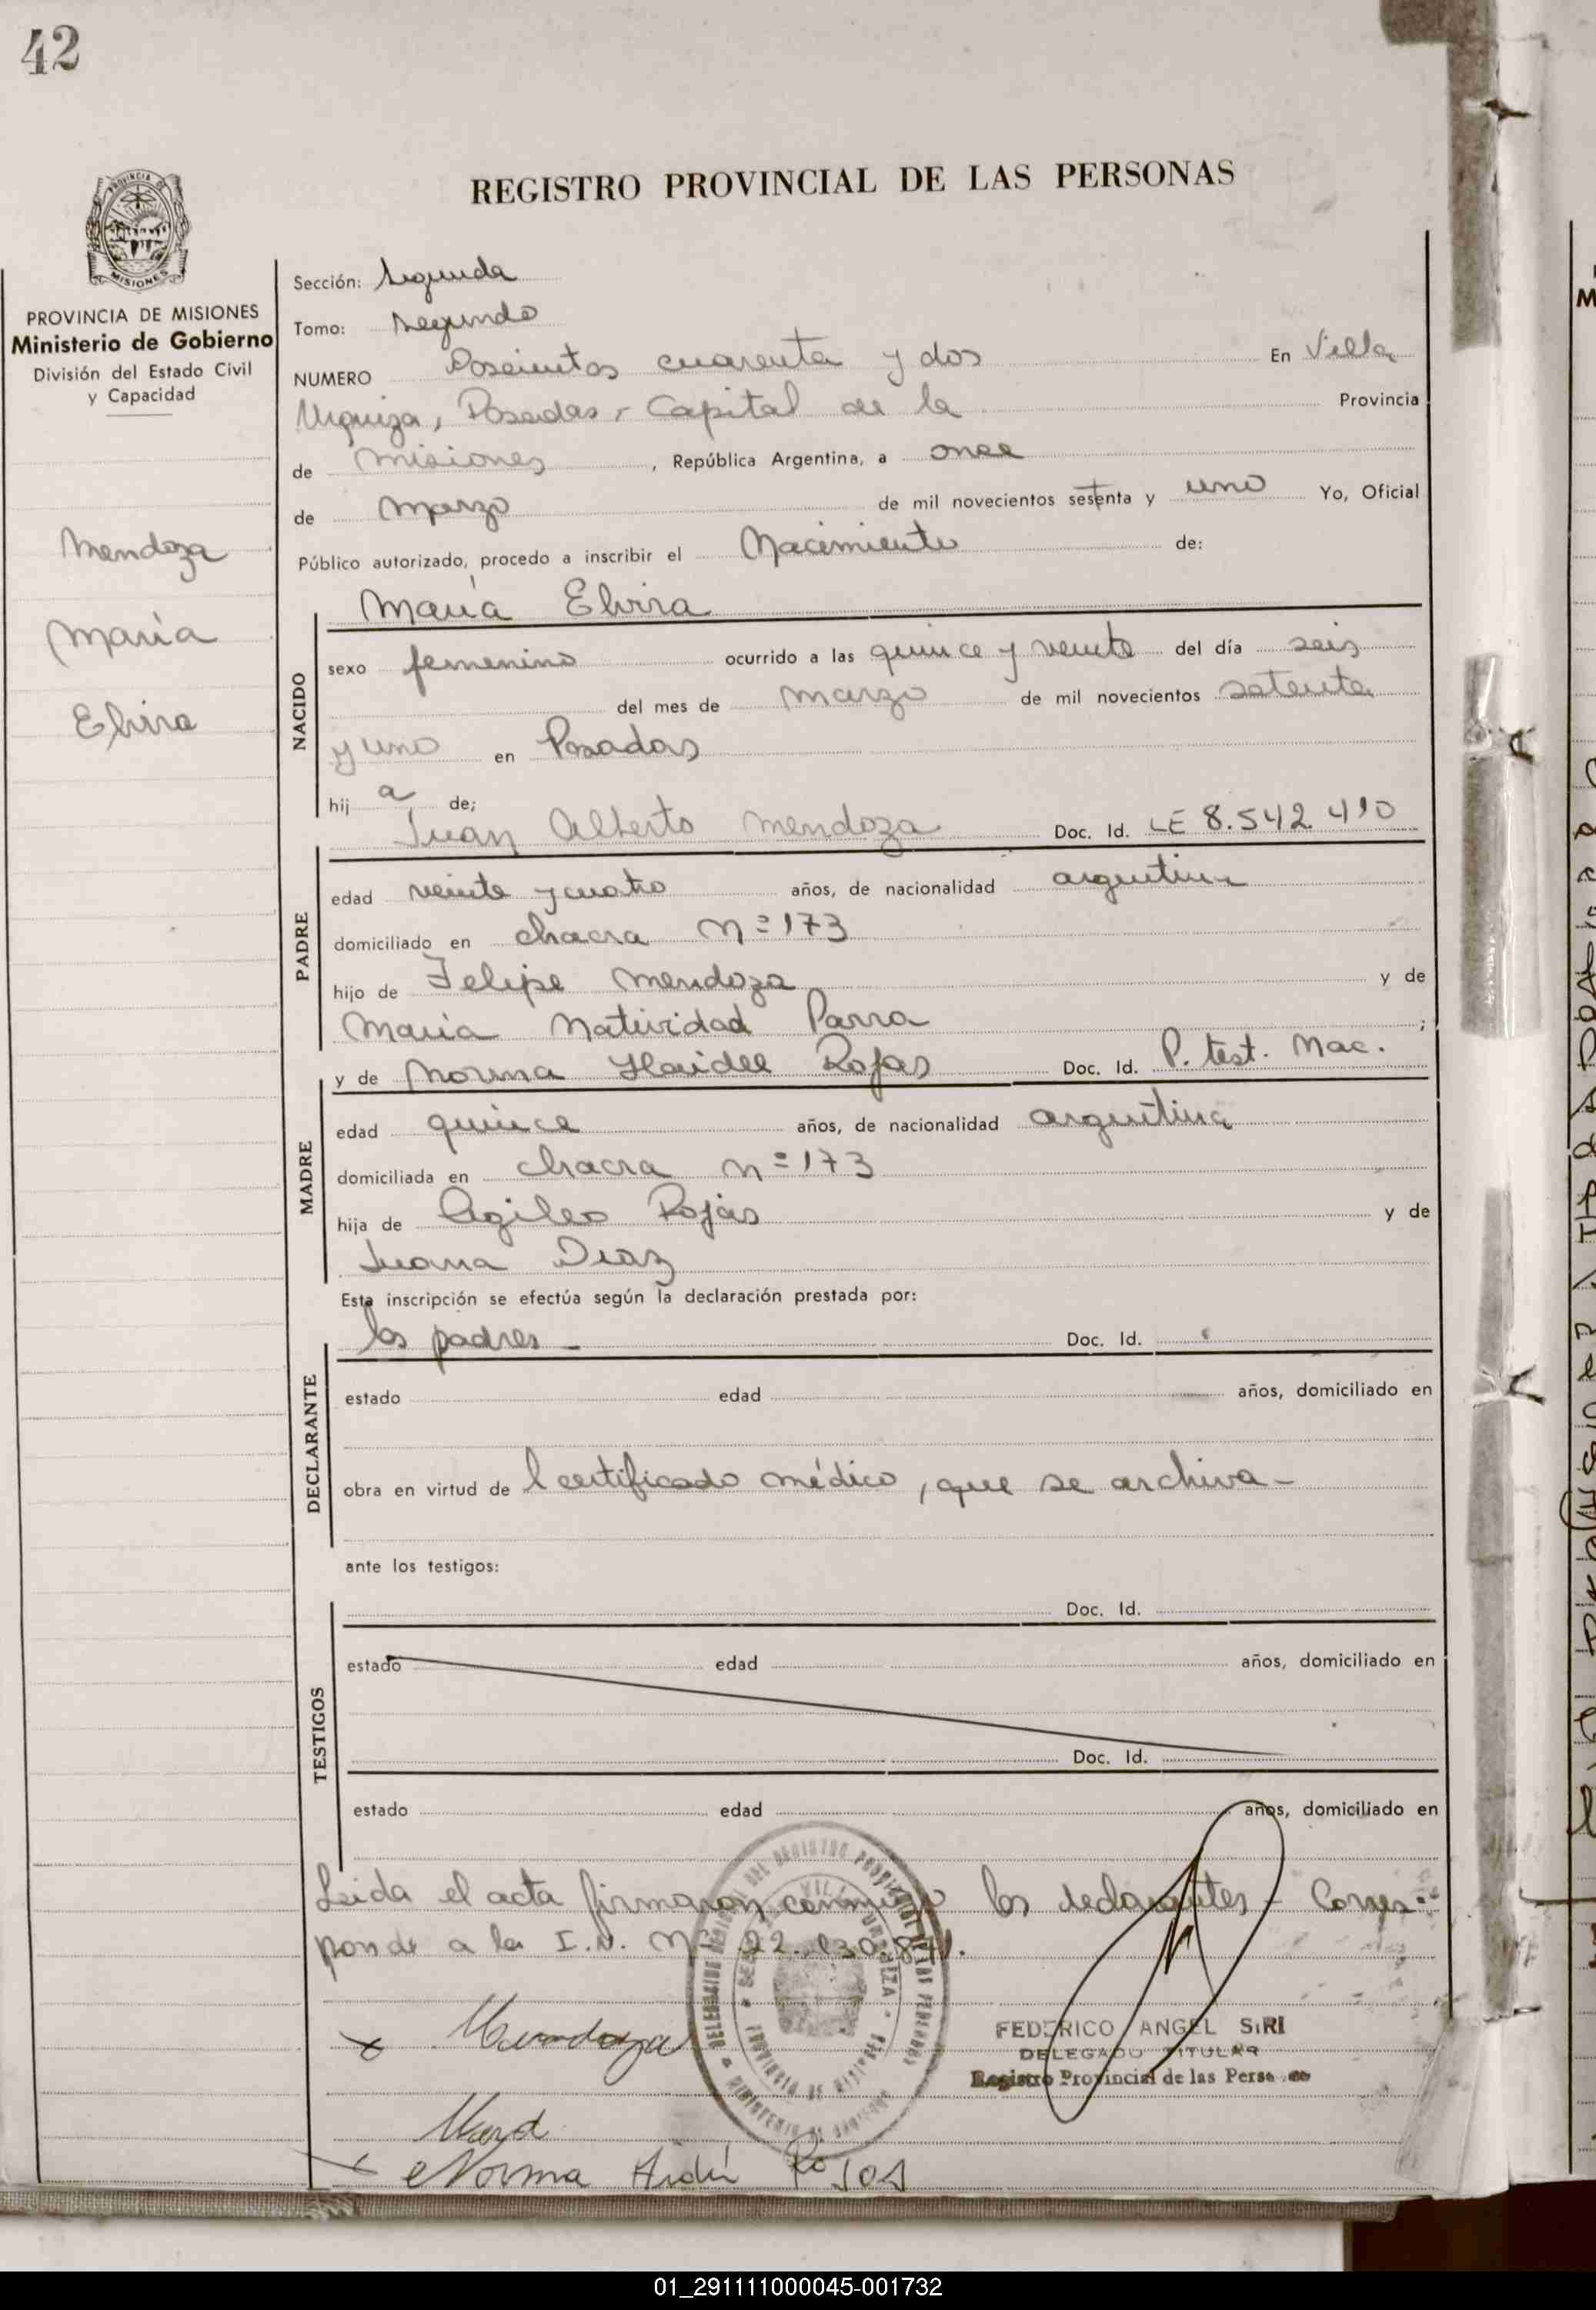 42
REGISTRO PROVINCIAL DE LAS PERSONAS
PROVINCIA DE
MISIONES
PROVINCIA DE MISIONES
Ministerio de Gobierno
División del Estado Civil
y Capacidad
Mendoza
María
Elvira
Sección: Segunda
Tomo: Segundo
NUMERO Doscientos cuarenta y dos En Villa
Urquiza, Posadas, Capital de la Provincia
de Misiones, República Argentina, a once
de Marzo de mil novecientos setenta y uno Yo, Oficial
Público autorizado, procedo a inscribir el Nacimiento de:
María Elvira
NACIDO
sexo femenino ocurrido a las quince y veinte del día seis
del mes de marzo de mil novecientos setenta
y uno en Posadas
hij a de;
Juan Alberto Mendoza Doc. Id. LE 8.542.410
PADRE
edad veinte y cuatro años, de nacionalidad argentina
domiciliado en chacra Nº 173
hijo de Felipe Mendoza y de
María Natividad Parra ;
y de Norma Haidee Rojas Doc. Id. P. test. Nac.
MADRE
edad quince años, de nacionalidad argentina
domiciliada en chacra nº 173
hija de Agileo Rojas y de
Juana Diaz
Esta inscripción se efectúa según la declaración prestada por:
los padres - Doc. Id.
DECLARANTE
estado edad años, domiciliado en
obra en virtud de l certificado médico, que se archiva -
ante los testigos:
Doc. Id.
TESTIGOS
estado edad años, domiciliado en
Doc. Id.
estado edad años, domiciliado en
Leida el acta firmaron conmigo los declarantes - Corres-
ponde a la I.N. Nº 22.
x Mendoza
FEDERICO ANGEL SIRI
DELEGADO TITULAR
Registro Provincial de las Perso
Norma
01_291111000045-001732